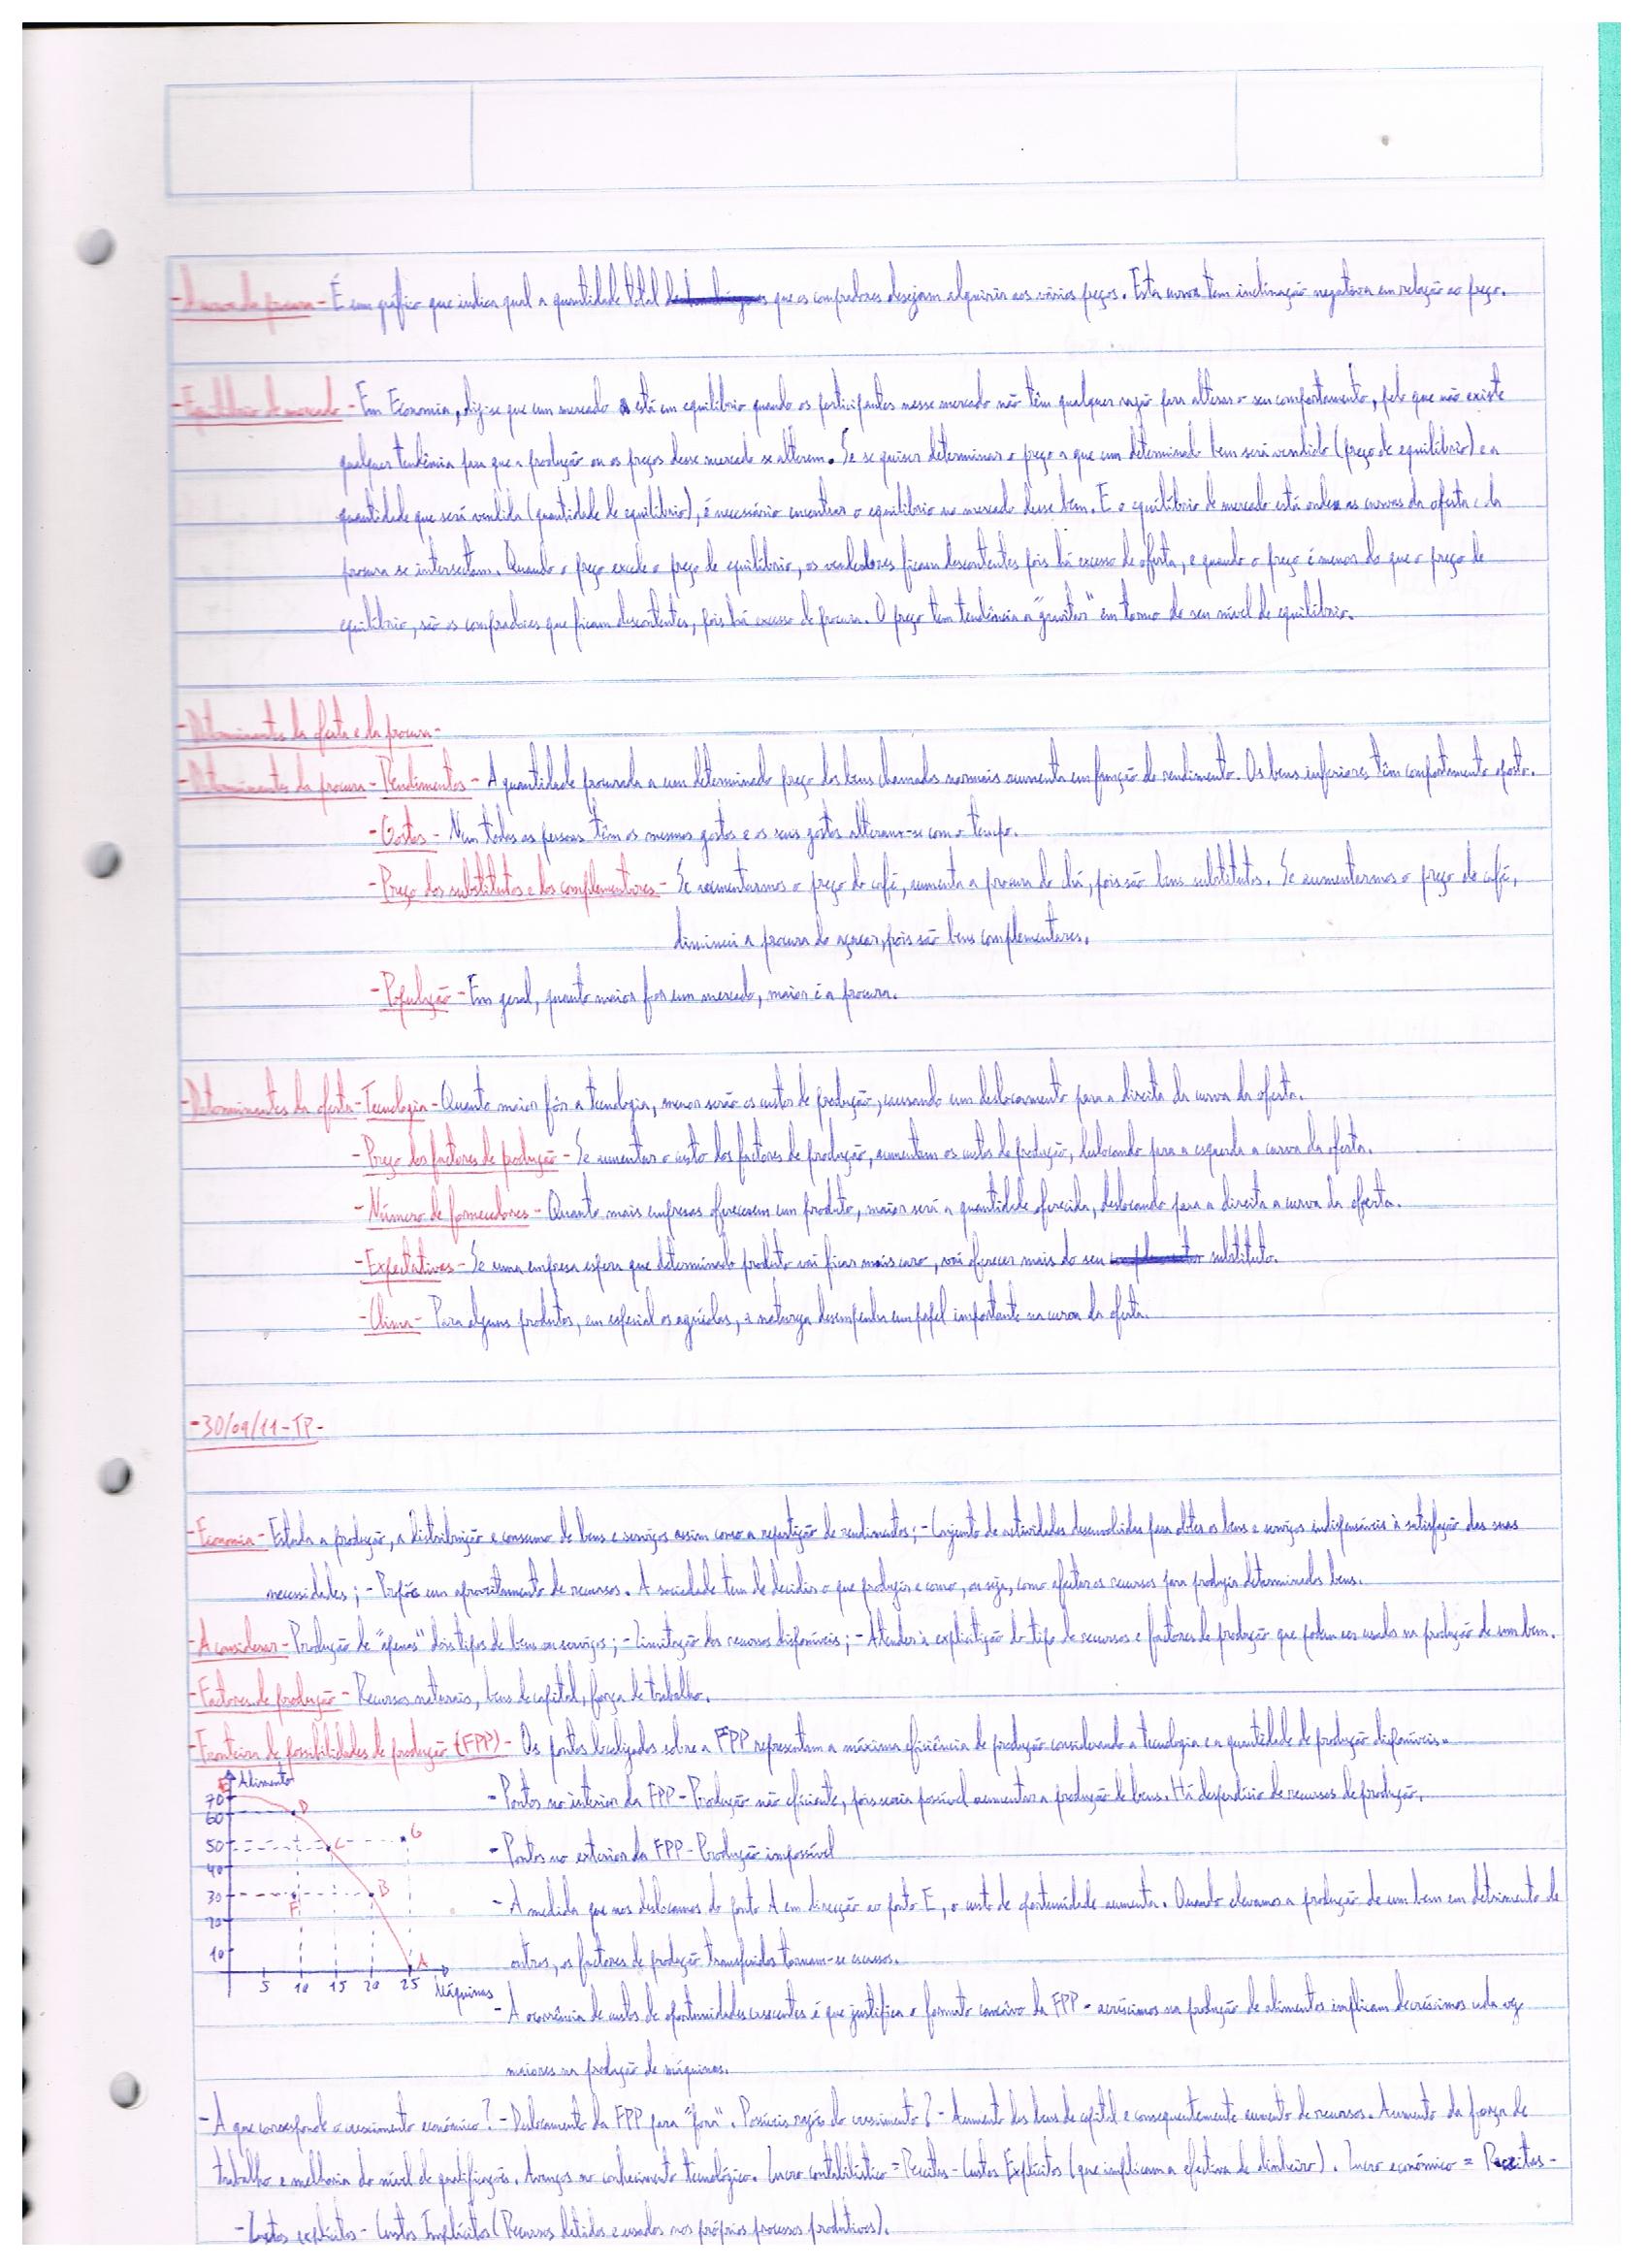 - A curva da procura - É um gráfico que indica qual a quantidade total que os compradores desejam adquirir aos vários preços. Esta curva tem inclinação negativa em relação ao preço.
- Equilíbrio de mercado - Em Economia, diz-se que um mercado está em equilíbrio quando os participantes nesse mercado não têm qualquer razão para alterar o seu comportamento, pelo que não existe
qualquer tendência para que a produção ou os preços desse mercado se alterem. Se se quiser determinar o preço a que um determinado bem será vendido (preço de equilíbrio) e a
quantidade que será vendida (quantidade de equilíbrio), é necessário encontrar o equilíbrio no mercado desse bem. E o equilíbrio de mercado está onde as curvas da oferta e da
procura se intersectam. Quando o preço excede o preço de equilíbrio, os vendedores ficam descontentes pois há excesso de oferta, e quando o preço é menor do que o preço de
equilíbrio, são os compradores que ficam descontentes, pois há excesso de procura. O preço tem tendência a "gravitar" em torno do seu nível de equilíbrio.
- Determinantes da oferta e da procura -
- Determinantes da procura - Rendimentos - A quantidade procurada a um determinado preço dos bens chamados normais aumenta em função do rendimento. Os bens inferiores têm comportamento oposto.
- Gostos - Nem todas as pessoas têm os mesmos gostos e os seus gostos alteram-se com o tempo.
- Preço dos substitutos e dos complementares - Se aumentarmos o preço do café, aumenta a procura do chá, pois são bens substitutos. Se aumentarmos o preço do café,
diminui a procura do açucar, pois são bens complementares.
- População - Em geral, quanto maior for um mercado, maior é a procura.
- Determinantes da oferta - Tecnologia - Quanto maior fôr a tecnologia, menor serão os custos de produção, causando um deslocamento para a direita da curva da oferta.
- Preço dos factores de produção - Se aumentar o custo dos factores de produção, aumentam os custos de produção, deslocando para a esquerda a curva da oferta.
- Número de fornecedores - Quanto mais empresas oferecerem um produto, maior será a quantidade oferecida, deslocando para a direita a curva da oferta.
- Expectativas - Se uma empresa espera que determinado produto vai ficar mais caro, vai oferecer mais do seu substituto.
- Clima - Para alguns produtos, em especial os agrícolas, a natureza desempenha um papel importante na curva da oferta.
- 30/09/11 - TP -
- Economia - Estuda a produção, a distribuição e consumo de bens e serviços assim como a repartição de rendimentos; - Conjunto de actividades desenvolvidas para obter os bens e serviços indispensáveis à satisfação das suas
necessidades; - Propõe um aproveitamento de recursos. A sociedade tem de decidir o que produzir e como, ou seja, como afectar os recursos para produzir determinados bens.
- A considerar - Produção de "apenas" dois tipos de bens ou serviços; - Limitação dos recursos disponíveis; - Atender à explicitação do tipo de recursos e factores de produção que podem ser usados na produção de um bem.
- Factores de produção - Recursos naturais, bens de capital, força de trabalho.
- Fronteira de possibilidades de produção (FPP) - Os pontos localizados sobre a FPP representam a máxima eficiência de produção considerando a tecnologia e a quantidade de produção disponíveis.
E Alimento
70
60 D
50 C G
40
30 F B
20
10 A
5 10 15 20 25 Máquinas
- Pontos no interior da FPP - Produção não eficiente, pois seria possível aumentar a produção de bens. Há desperdício de recursos de produção.
- Pontos no exterior da FPP - Produção impossível
- A medida que nos deslocamos do ponto A em direcção ao ponto E, o custo de oportunidade aumenta. Quando elevamos a produção de um bem em detrimento de
outros, os factores de produção transferidos tornam-se escassos.
- A ocorrência de custos de oportunidades crescentes é que justifica o formato concâvo da FPP - acréscimos na produção de alimentos implicam decréscimos cada vez
maiores na produção de máquinas.
- A que corresponde o crescimento económico? - Deslocamento da FPP para "fora". Possíveis razões do crescimento? - Aumento dos bens de capital e consequentemente aumento de recursos. Aumento da força de
trabalho e melhoria do nível de qualificações. Avanços no conhecimento tecnológico. Lucro contabilístico = Receitas - Custos Explícitos (que implicam a efectiva de dinheiro). Lucro económico = Receitas -
- Custos explícitos - Custos Implícitos (Recursos detidos e usados nos próprios processos produtivos).